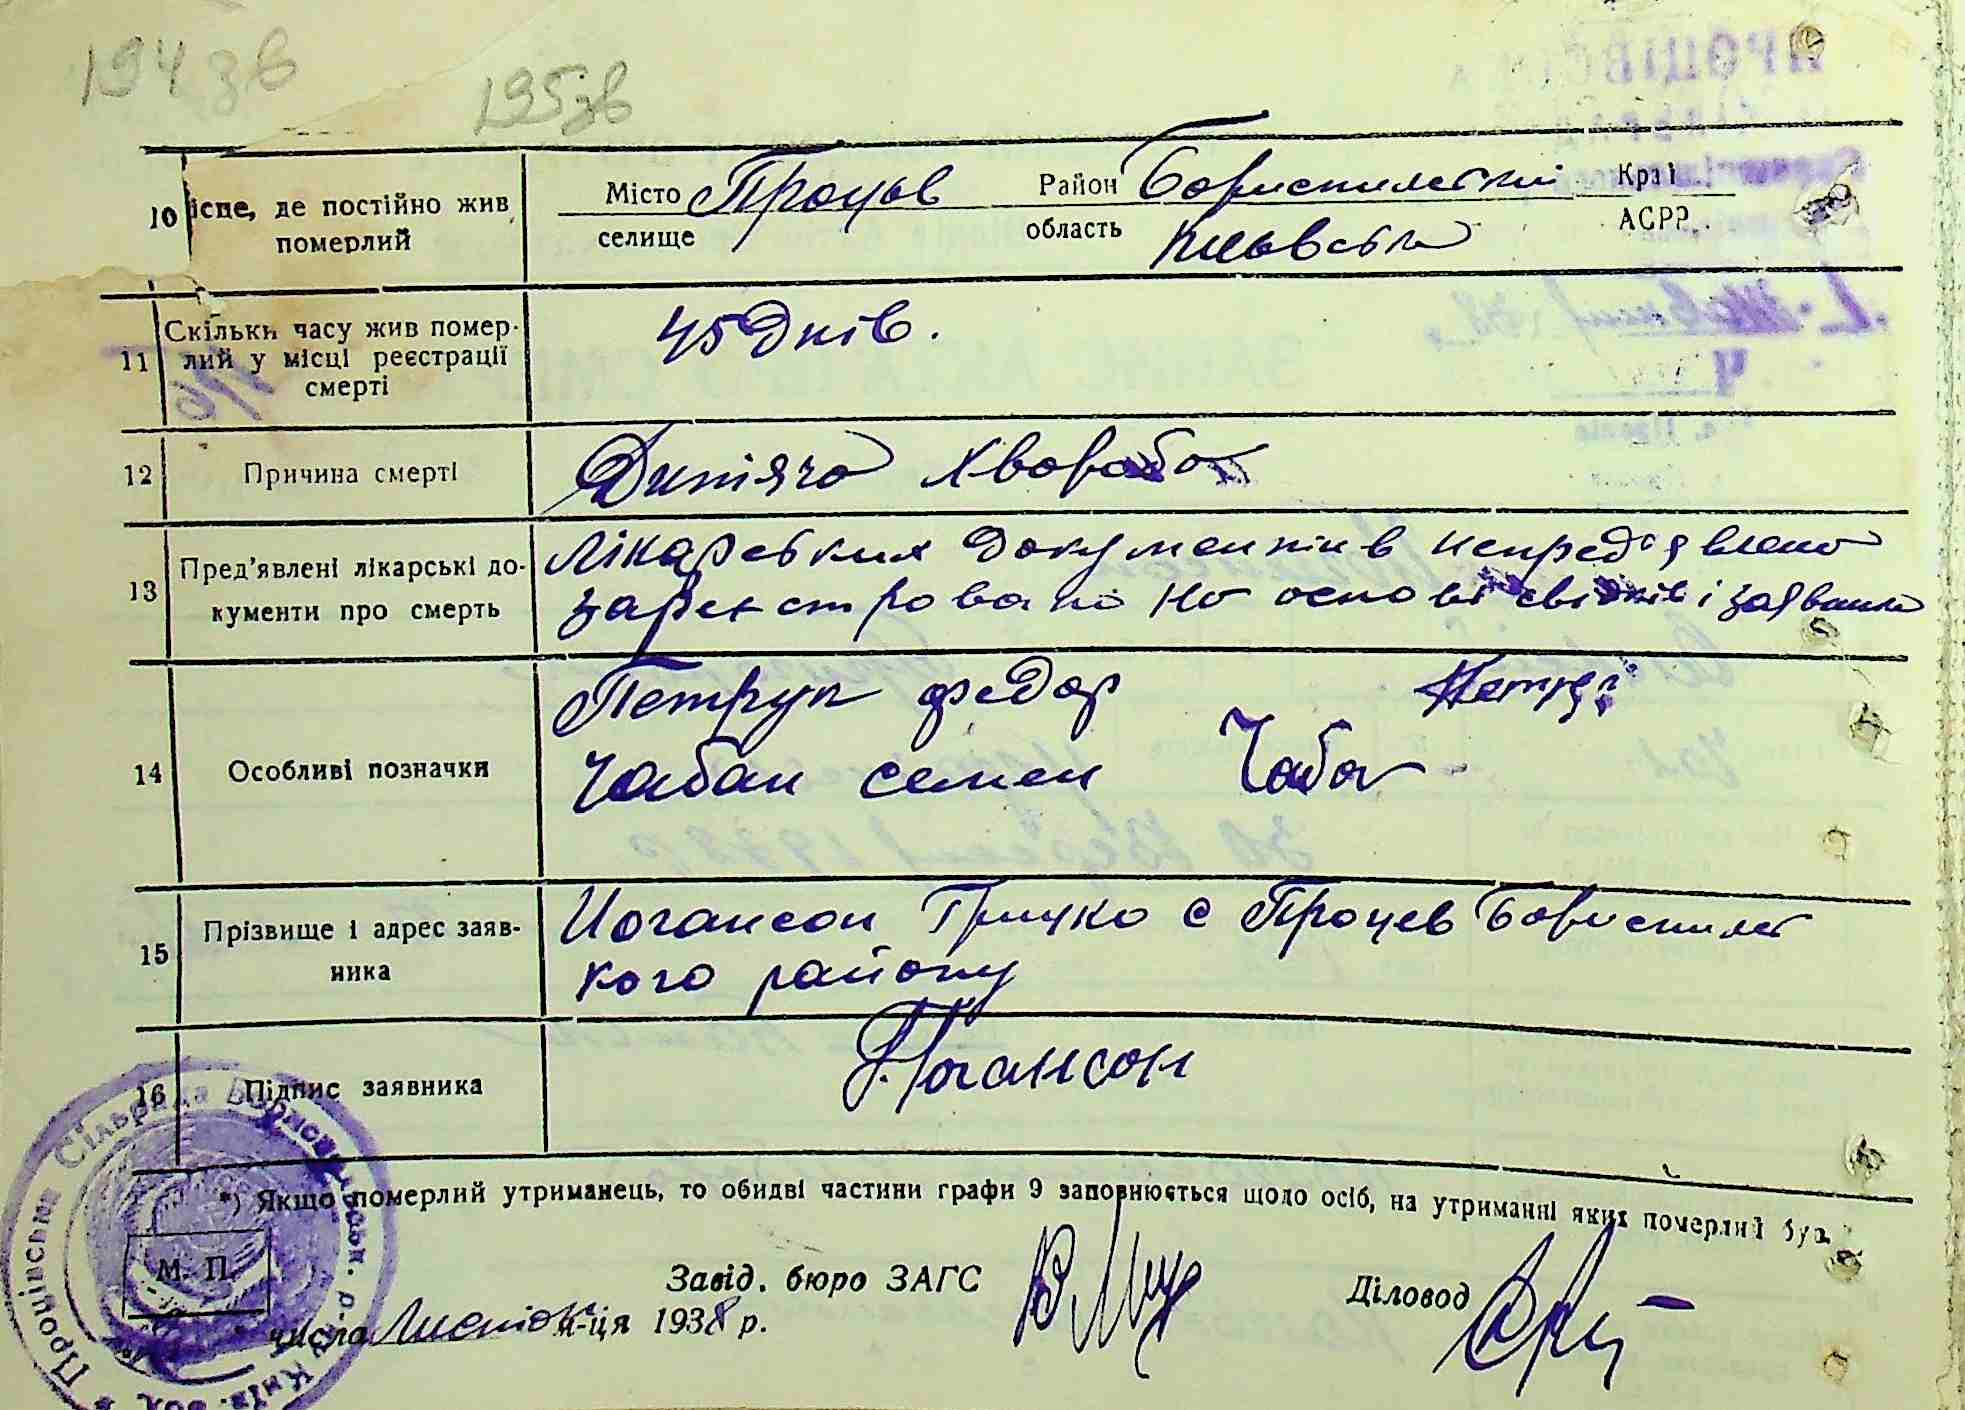 194зв
195зв
10 ісце, де постійно жив померлий
Місто Процьв Район Бориспилський Краї
селище область Київська АСРР.
11 Скільки часу жив помер-
лий у місці реєстрації
смерті
45 Днів.
12 Причина смерті
Дитяча хвороба
13 Пред'явлені лікарські до-
кументи про смерть
Лікарських документів непредявлено
зареєстровано на основі свідків і заявника
14 Особливі позначки
Петрун Федор
Чабан семен Чабан
15 Прізвище і адрес заяв-
ника
Иогансон Грицко с Процев Бориспилс
кого району
16 Підпис заявника
Иогансон
*) Якщо померлий утриманець, то обидві частини графи 9 заповнюється щодо осіб, на утриманні яких померлий був.
М. П.
Завід. бюро ЗАГС
Діловод
числа Листіо м-ця 1938 р.
Проців Сільрада Київ. обл.